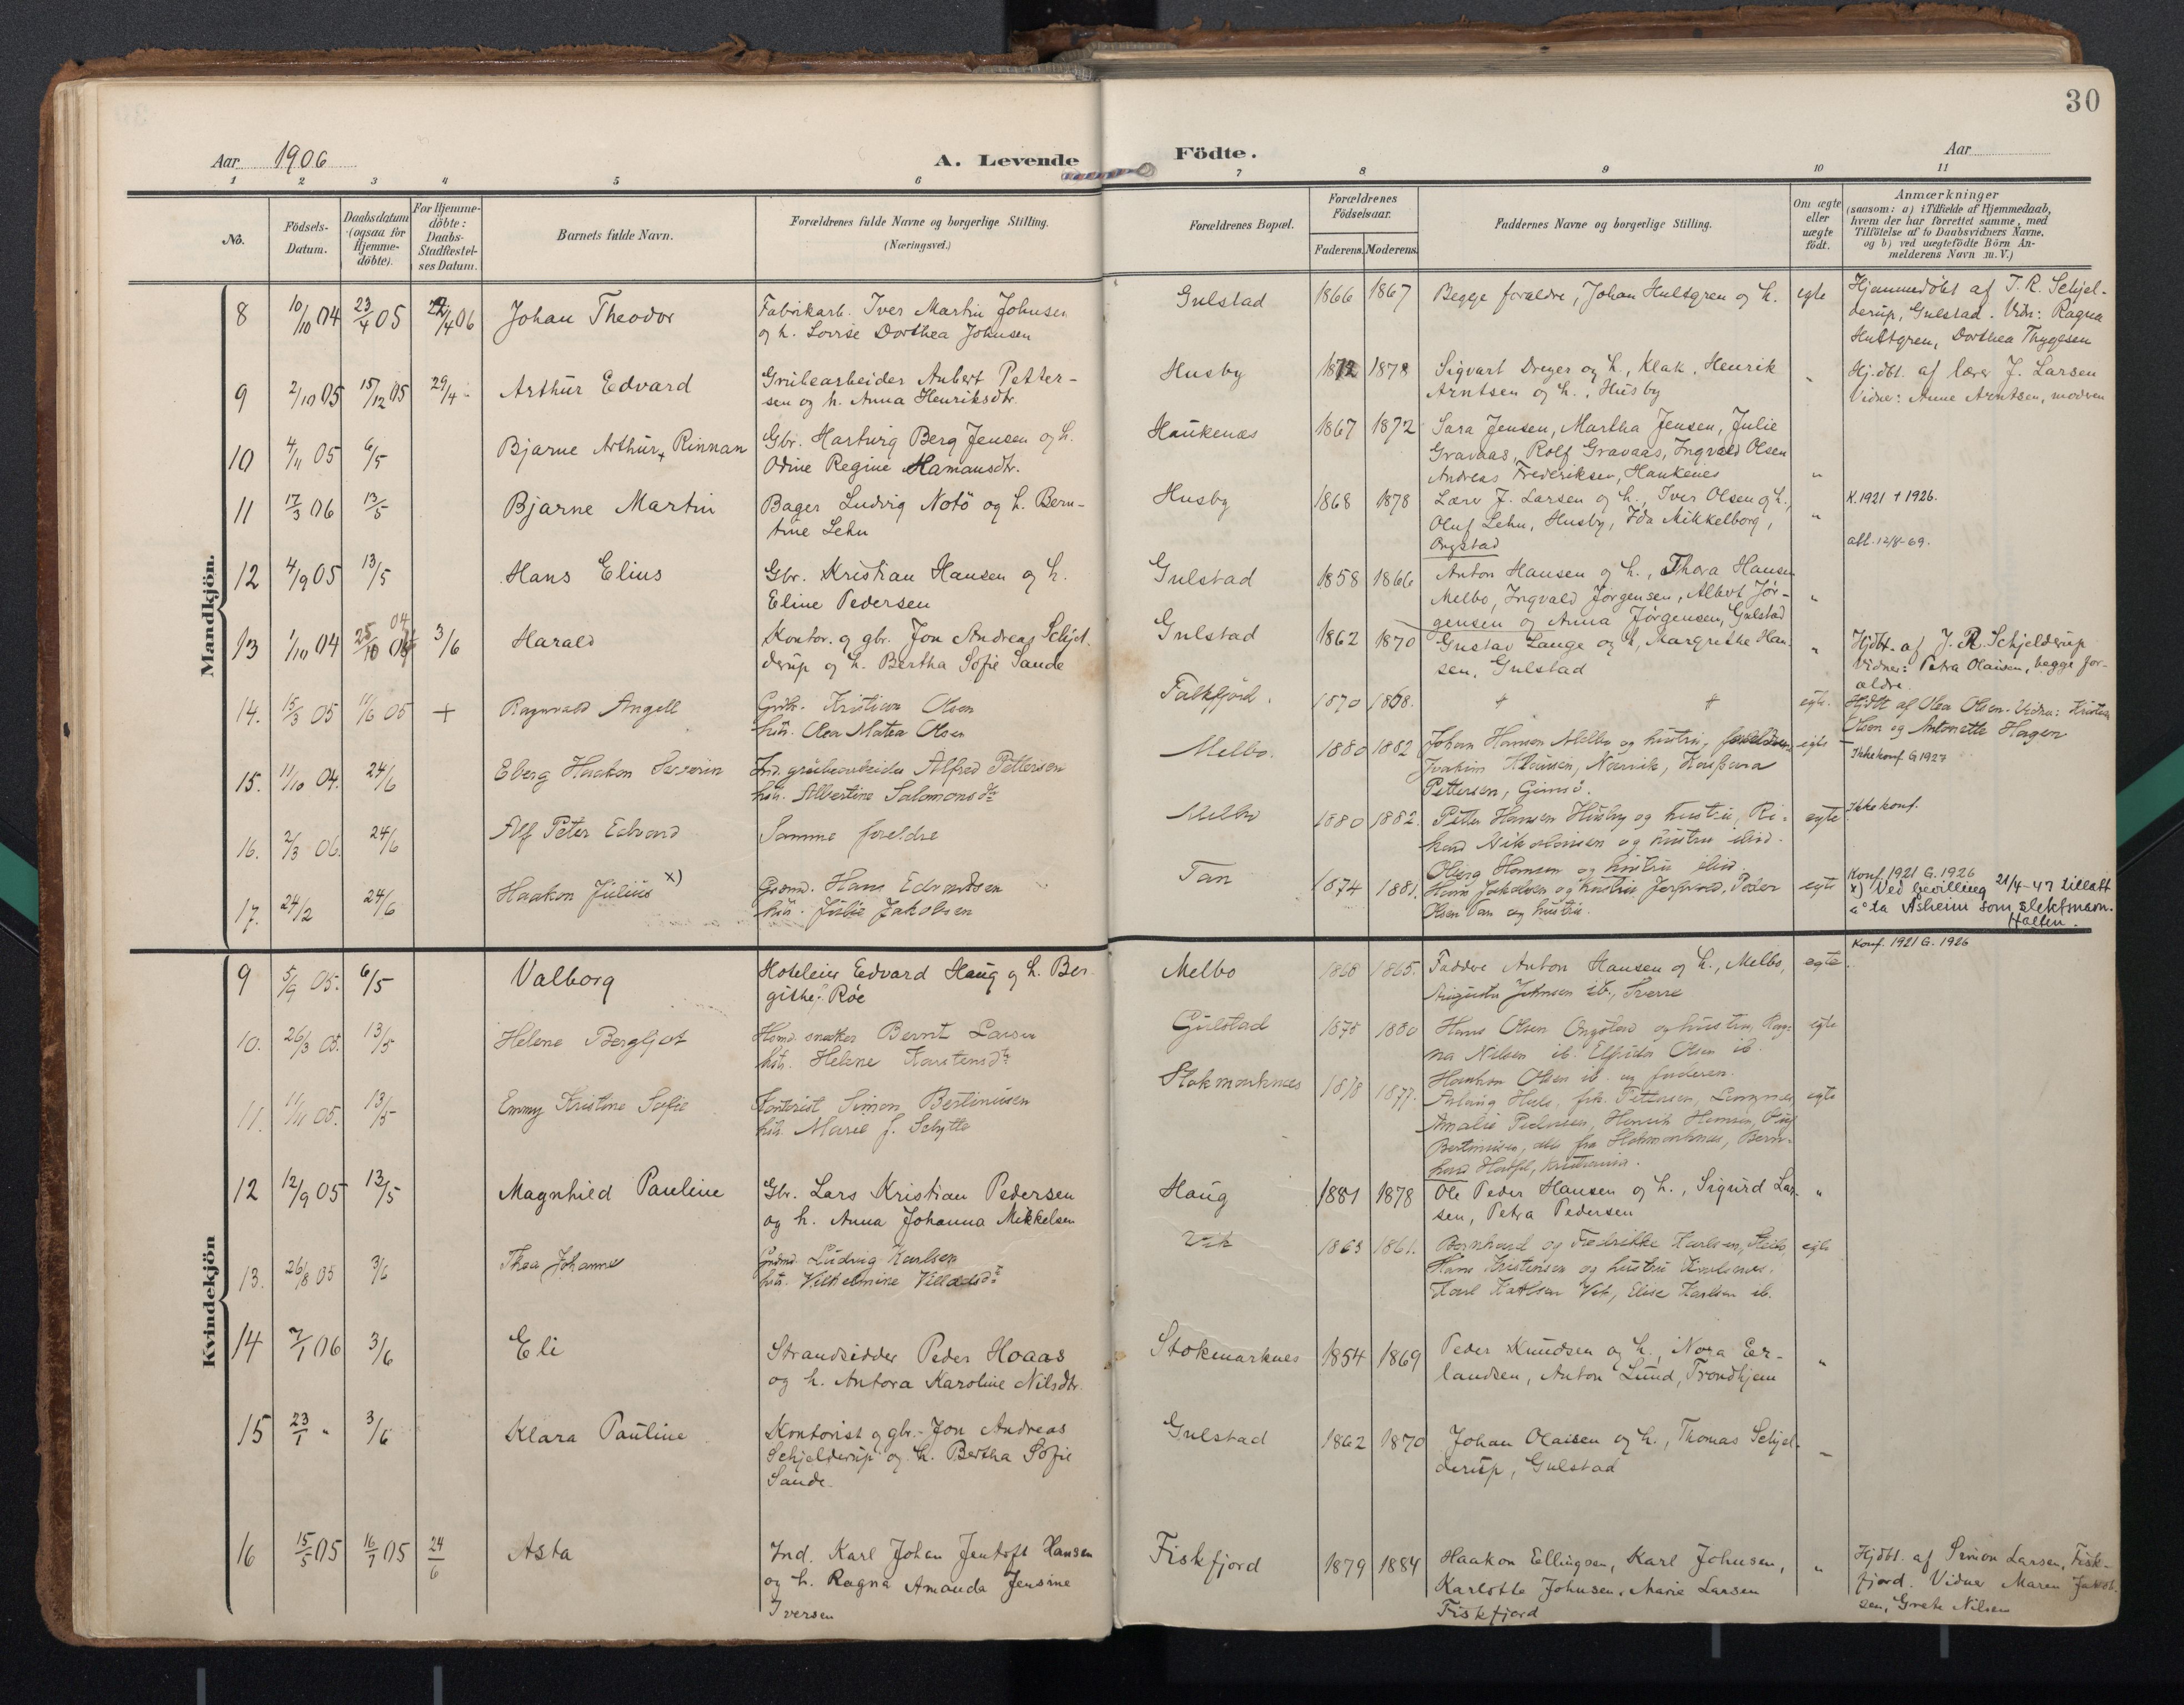 30
Aar 1906
A. Levende Födte.
Aar
1 2 3 4 5 6 7 8 9 10 11
No.
Födsels-Datum.
Daabsdatum (ogsaa for Hjemme-döbte).
For Hjemme-döbte: Daabs-Stadfæstel-ses Datum.
Barnets fulde Navn.
Forældrenes fulde Navne og borgerlige Stilling.
(Næringsvei.)
Forældrenes Bopæl.
Forældrenes Födselsaar.
Faderens. Moderens.
Faddernes Navne og borgerlige Stilling.
Om ægte eller uægte födt.
Anmærkninger
(saasom: a) i Tilfælde af Hjemmedaab,
hvem der har forrettet samme, med
Tilföielse af to Daabsvidners Navne,
og b) ved uægtefödte Börn An-
melderens Navn m. V.)
Mandkjön.
8 10/10 04 23/4 05 22/4 06 Johan Theodor
Fabrikarb. Iver Martin Johnsen
og h. Lovise Dorthea Johnsen
Gulstad 1866 1867
Begge forældre, Johan Hultgren og h. egte
Hjemmedöbt af J. R. Schjel-
derup, Gulstad. Vidn: Ragna
Hultgren, Dorthea Thygesen
9 2/10 05 15/12 05 29/4 " Arthur Edvard
Grubearbeider Aubert Petter-
sen og h. Anna Henriksdtr.
Husby 1872 1878
Sigvart Dreyer og h., Klak, Henrik
Arntsen og h., Husby "
Hj.dbt. af lærer J. Larsen
Vidner: Anne Arntsen, modren
10 4/11 05 6/5 Bjarne Arthur + Rinnan
Gbr. Hartvig Berg Jensen og h.
Odine Regine Hamansdtr.
Haukenæs 1867 1872
Sara Jensen, Martha Jensen, Julie
Gravaas, Rolf Gravaas, Ingvald Olsen
Andreas Frederiksen, Haukenes "
11 17/3 06 13/5 Bjarne Martin
Bager Ludvig Notö og h. Bern-
tine Lehn
Husby 1868 1878
Lærer J. Larsen og h., Iver Olsen og h.,
Oluf Lehn, Husby, Ida Mikkelborg,
Ongstad "
K. 1921 + 1926.
att. 12/8-69.
12 4/9 05 13/5 Hans Elius
Gbr. Kristian Hansen og h.
Eline Pedersen
Gulstad 1858 1866
Anton Hansen og h., Thora Hansen
Melbo, Ingvald Jörgensen, Albert Jör-
gensen og Anna Jörgensen, Gulstad "
13 1/10 04 25/10 04 3/6 Harald
Kontor. og gbr. Jon Andreas Schjel-
derup og h. Bertha Sofie Sande
Gulstad 1862 1870
Gustav Lange og h, Margrethe Han-
sen, Gulstad "
Hjdbt. af J. R. Schjelderup
Vidner: Petra Olaisen, begge for-
ældre.
14. 15/3 05 11/6 05 + Ragnvald Angell
Grdb. Kristian Olsen
hu. Olea Matea Olsen
Falkfjord. 1870 1868. + + egte.
Hjdbt af Olea Olsen. Vidn: Kristian
Olsen og Antonette Hagen
15. 11/10 04. 24/6 Eberg Haakon Severin
Ind. grubearbeider Alfred Pettersen
hu. Albertine Salomonsdtr
Melbo. 1880 1882
Johan Hansen Melbo og hustru, forældrene
Joakim Klausen, Narvik, Kaspara
Pettersen, Gimsö. egte
Ikke konf. G 1927
16. 2/3 06. 24/6 Alf Peter Edvard
Samme foreldre
Melbo 1880 1882.
Petter Hansen Husby og hustru, Ri-
kard Nikolaisen og hustru ibid. egte
Ikke konf.
17. 24/2 24/6 Haakon Julius x)
Grdmd. Hans Edvardsen
hu. Julie Jakobsen
Tan 1874 1881.
Oberg Hansen og hustru ibid
Hans Jakobsen og hustru, Peder
Olsen Tan og hustru. egte
Konf. 1921 G. 1926
x) Ved bevilling 21/4-47 tillatt
å ta Asheim som slektsnavn.
Halten.
Kvindekjön
9 5/9 05. 6/5 Valborg
Hoteleier Edvard Haug og h. Ber-
githe f. Röe
Melbo 1868 1865.
Faddre Anton Hansen og h., Melbo,
Augusta Johnsen ib., Sverre egte.
Konf. 1921 G. 1926
10. 26/3 05. 13/5 Helene Bergljot
Hsmd. snekker Bernt Larsen
hu. Helene Karstensdtr
Gulstad 1875 1880
Hans Olsen Ongstad og hustru, Rag-
na Nilsen ib. Elfrida Olsen ib.
Haakon Olsen ib. og faderen. egte
11. 11/11 05. 13/5 Emmy Kristine Sofie
Kontorist Simon Bertinusen
hu. Marie f. Schytte
Stokmarknes 1878 1877.
Aslaug Hals, frk. Pettersen, Langnes
Amalie Pedersen, Henrik Hansen, Olaf
Bertinusen, alle fra Stokmarknes, Bern-
hard egte
12 12/9 05 13/5 Magnhild Pauline
Gbr. Lars Kristian Pedersen
og h. Anna Johanna Mikkelsen
Haug 1881 1878
Ole Peder Hansen og h., Sigurd Lar-
sen, Petra Pedersen "
13. 26/8 05 3/6 Thea Johanne
Grdmd. Ludvig Karlsen
hu. Vilhelmine Villadsdtr
Vik 1863 1861.
Bernhard og Fredrikke Karlsen,
Hans Kristensen og hustru
Karl Karlsen Vik, Elise Karlsen ib. egte
14 7/1 06 3/6 Eli
Strandsidder Peder Hoaas
og h. Antora Karoline Nilsdtr.
Stokmarknes 1854 1869
Peder Knudsen og h., Nora Er-
landsen, Anton Lund, Trondhjem "
15 23/1 " 3/6 Klara Pauline
Kontorist og gbr. Jon Andreas
Schjelderup og h. Bertha Sofie
Sande.
Gulstad 1862 1870
Johan Olaisen og h., Thomas Schjel-
derup, Gulstad "
16 15/5 05 16/7 05 24/6 Asta
Ind. Karl Johan Jentoft Hansen
og h. Ragna Amanda Jensine
Iversen
Fiskfjord 1879 1884
Haakon Ellingsen, Karl Johnsen,
Karlotte Johnsen, Marie Larsen
Fiskfjord "
Hjdbt. af Simon Larsen, Fisk-
fjord. Vidner Maren Jakob-
sen, Grete Nilsen